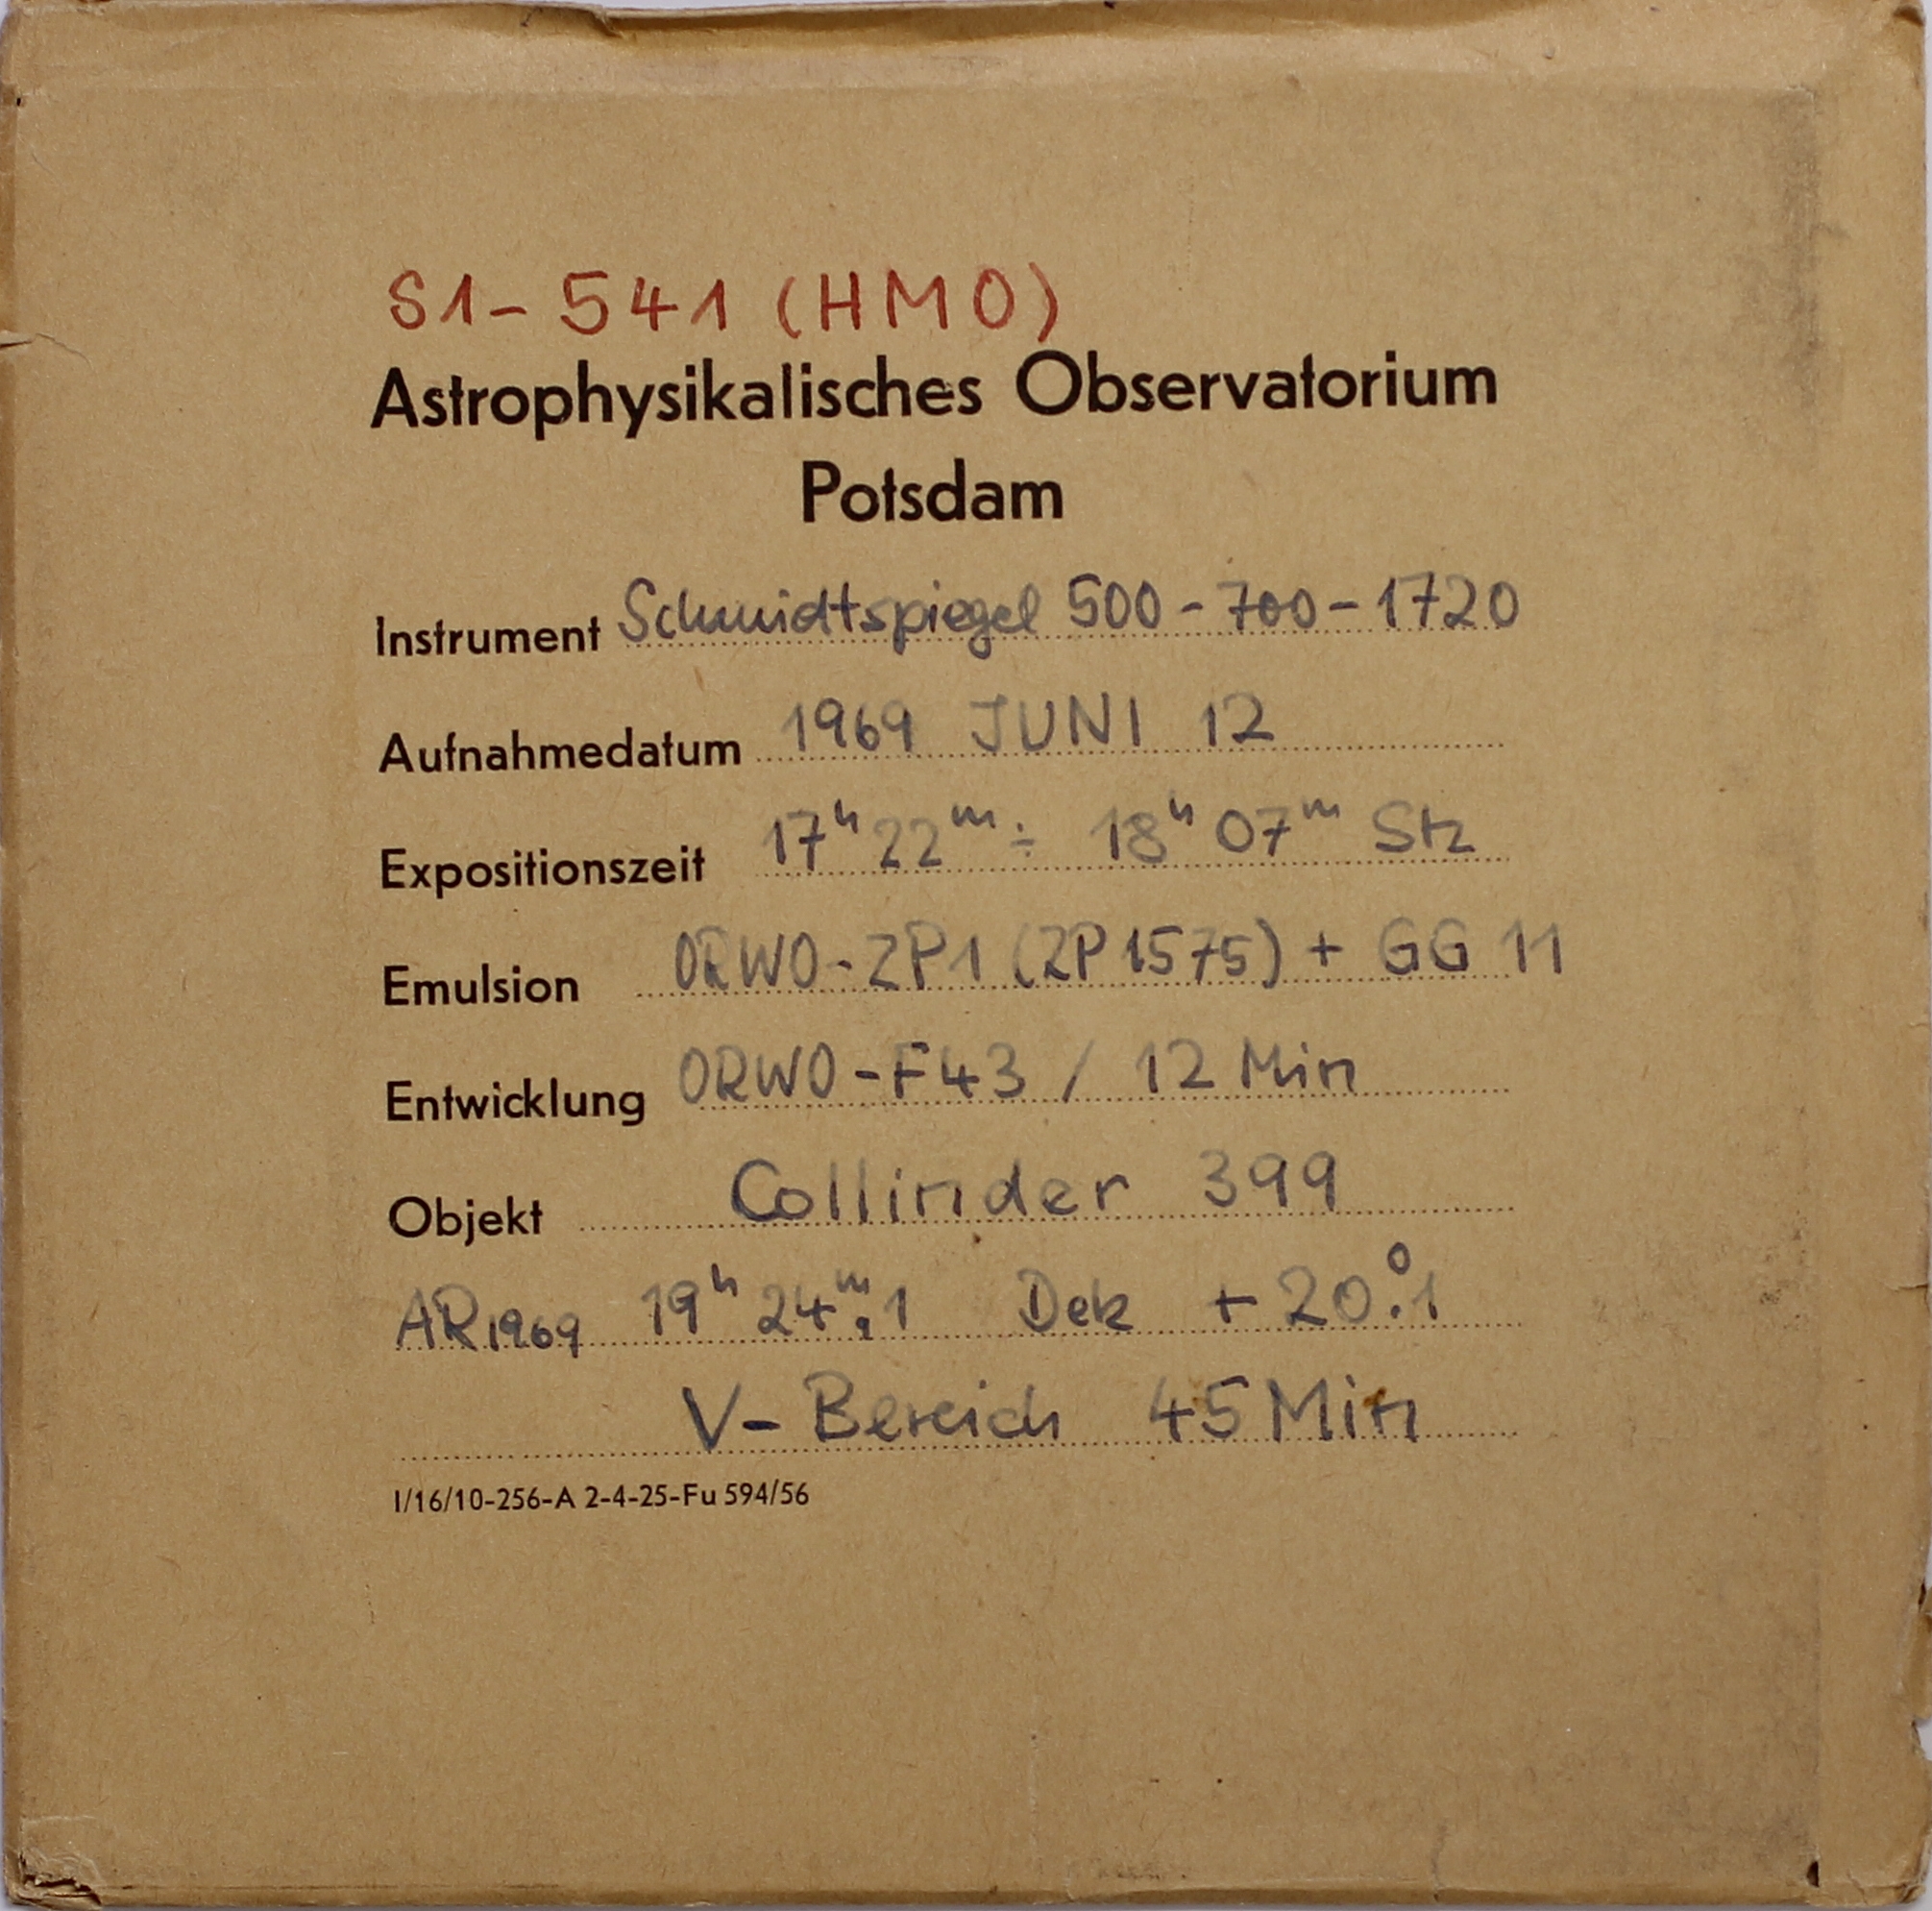 S1-541 (HMO)
Astrophysikalisches Observatorium
Potsdam
Instrument Schmidtspiegel 500-700-1720
Aufnahmedatum 1969 JUNI 12
Expositionszeit 17ʰ22ᵐ ÷ 18ʰ07ᵐ Stz
Emulsion ORWO-ZP1 (ZP1575) + GG 11
Entwicklung ORWO-F43 / 12 Min
Objekt Collinder 399
AR1969 19ʰ 24ᵐ.1 Dek +20°.1
V-Bereich 45 Min
I/16/10-256-A 2-4-25-Fu 594/56